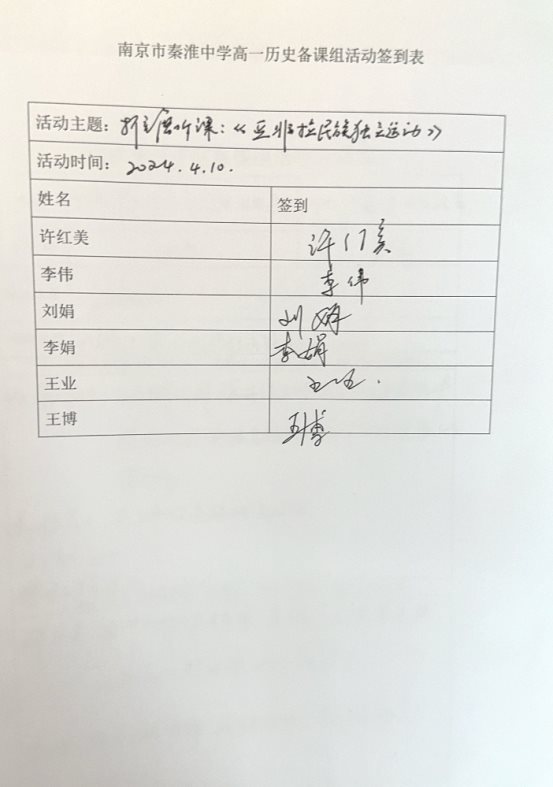 南京市秦淮中学高一历史备课组活动签到表
活动主题：听课：《亚非拉民族独立运动》
活动时间：2024.4.10.
姓名 签到
许红美 许红美
李伟 李伟
刘娟 刘娟
李娟 李娟
王业 王业.
王博 王博